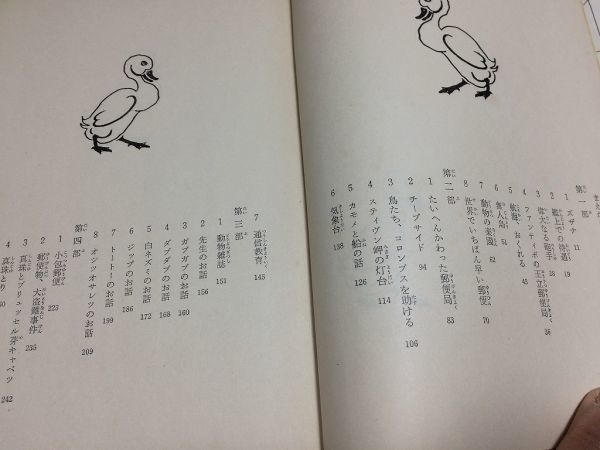 第一部
1 ズザナ 11
2 艦上での接遇 19
3 偉大なる砲手 28
4 ファンティポの王立郵便局 36
5 航海、おくれる 45
6 無人島 51
7 動物の楽園 62
8 世界でいちばん早い郵便 70
第二部
1 たいへんかわった郵便局 83
2 チープサイド 94
3 鳥たち、コロンブスを助ける 106
4 スティヴン岬の灯台 114
5 カモメと船の話 126
6 気象台 138
7 通信教育 145
第三部
1 動物雑誌 151
2 先生のお話 156
3 ガブガブのお話 160
4 ダブダブのお話 168
5 白ネズミのお話 172
6 ジップのお話 186
7 トートーのお話 199
8 オシツオサレツのお話 209
第四部
1 小包郵便 223
2 郵便物、大盗難事件 235
3 真珠とブリュッセル芽キャベツ 242
4 真珠とり